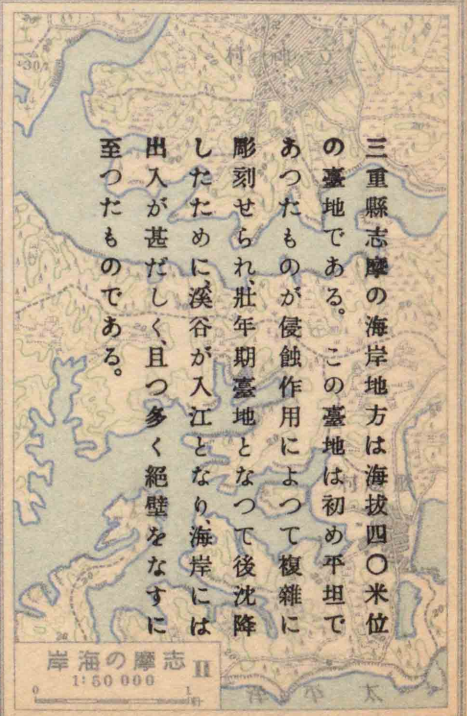 三重縣志摩の海岸地方は海拔四〇米位
の臺地である。この臺地は初め平坦で
あつたものが侵蝕作用によつて複雜に
彫刻せられ、壯年期臺地となつて後沈降
したために、溪谷が入江となり、海岸には
出入が甚だしく、且つ多く絕壁をなすに
至つたものである。
岸海の摩志 II
1:50 000
0 1